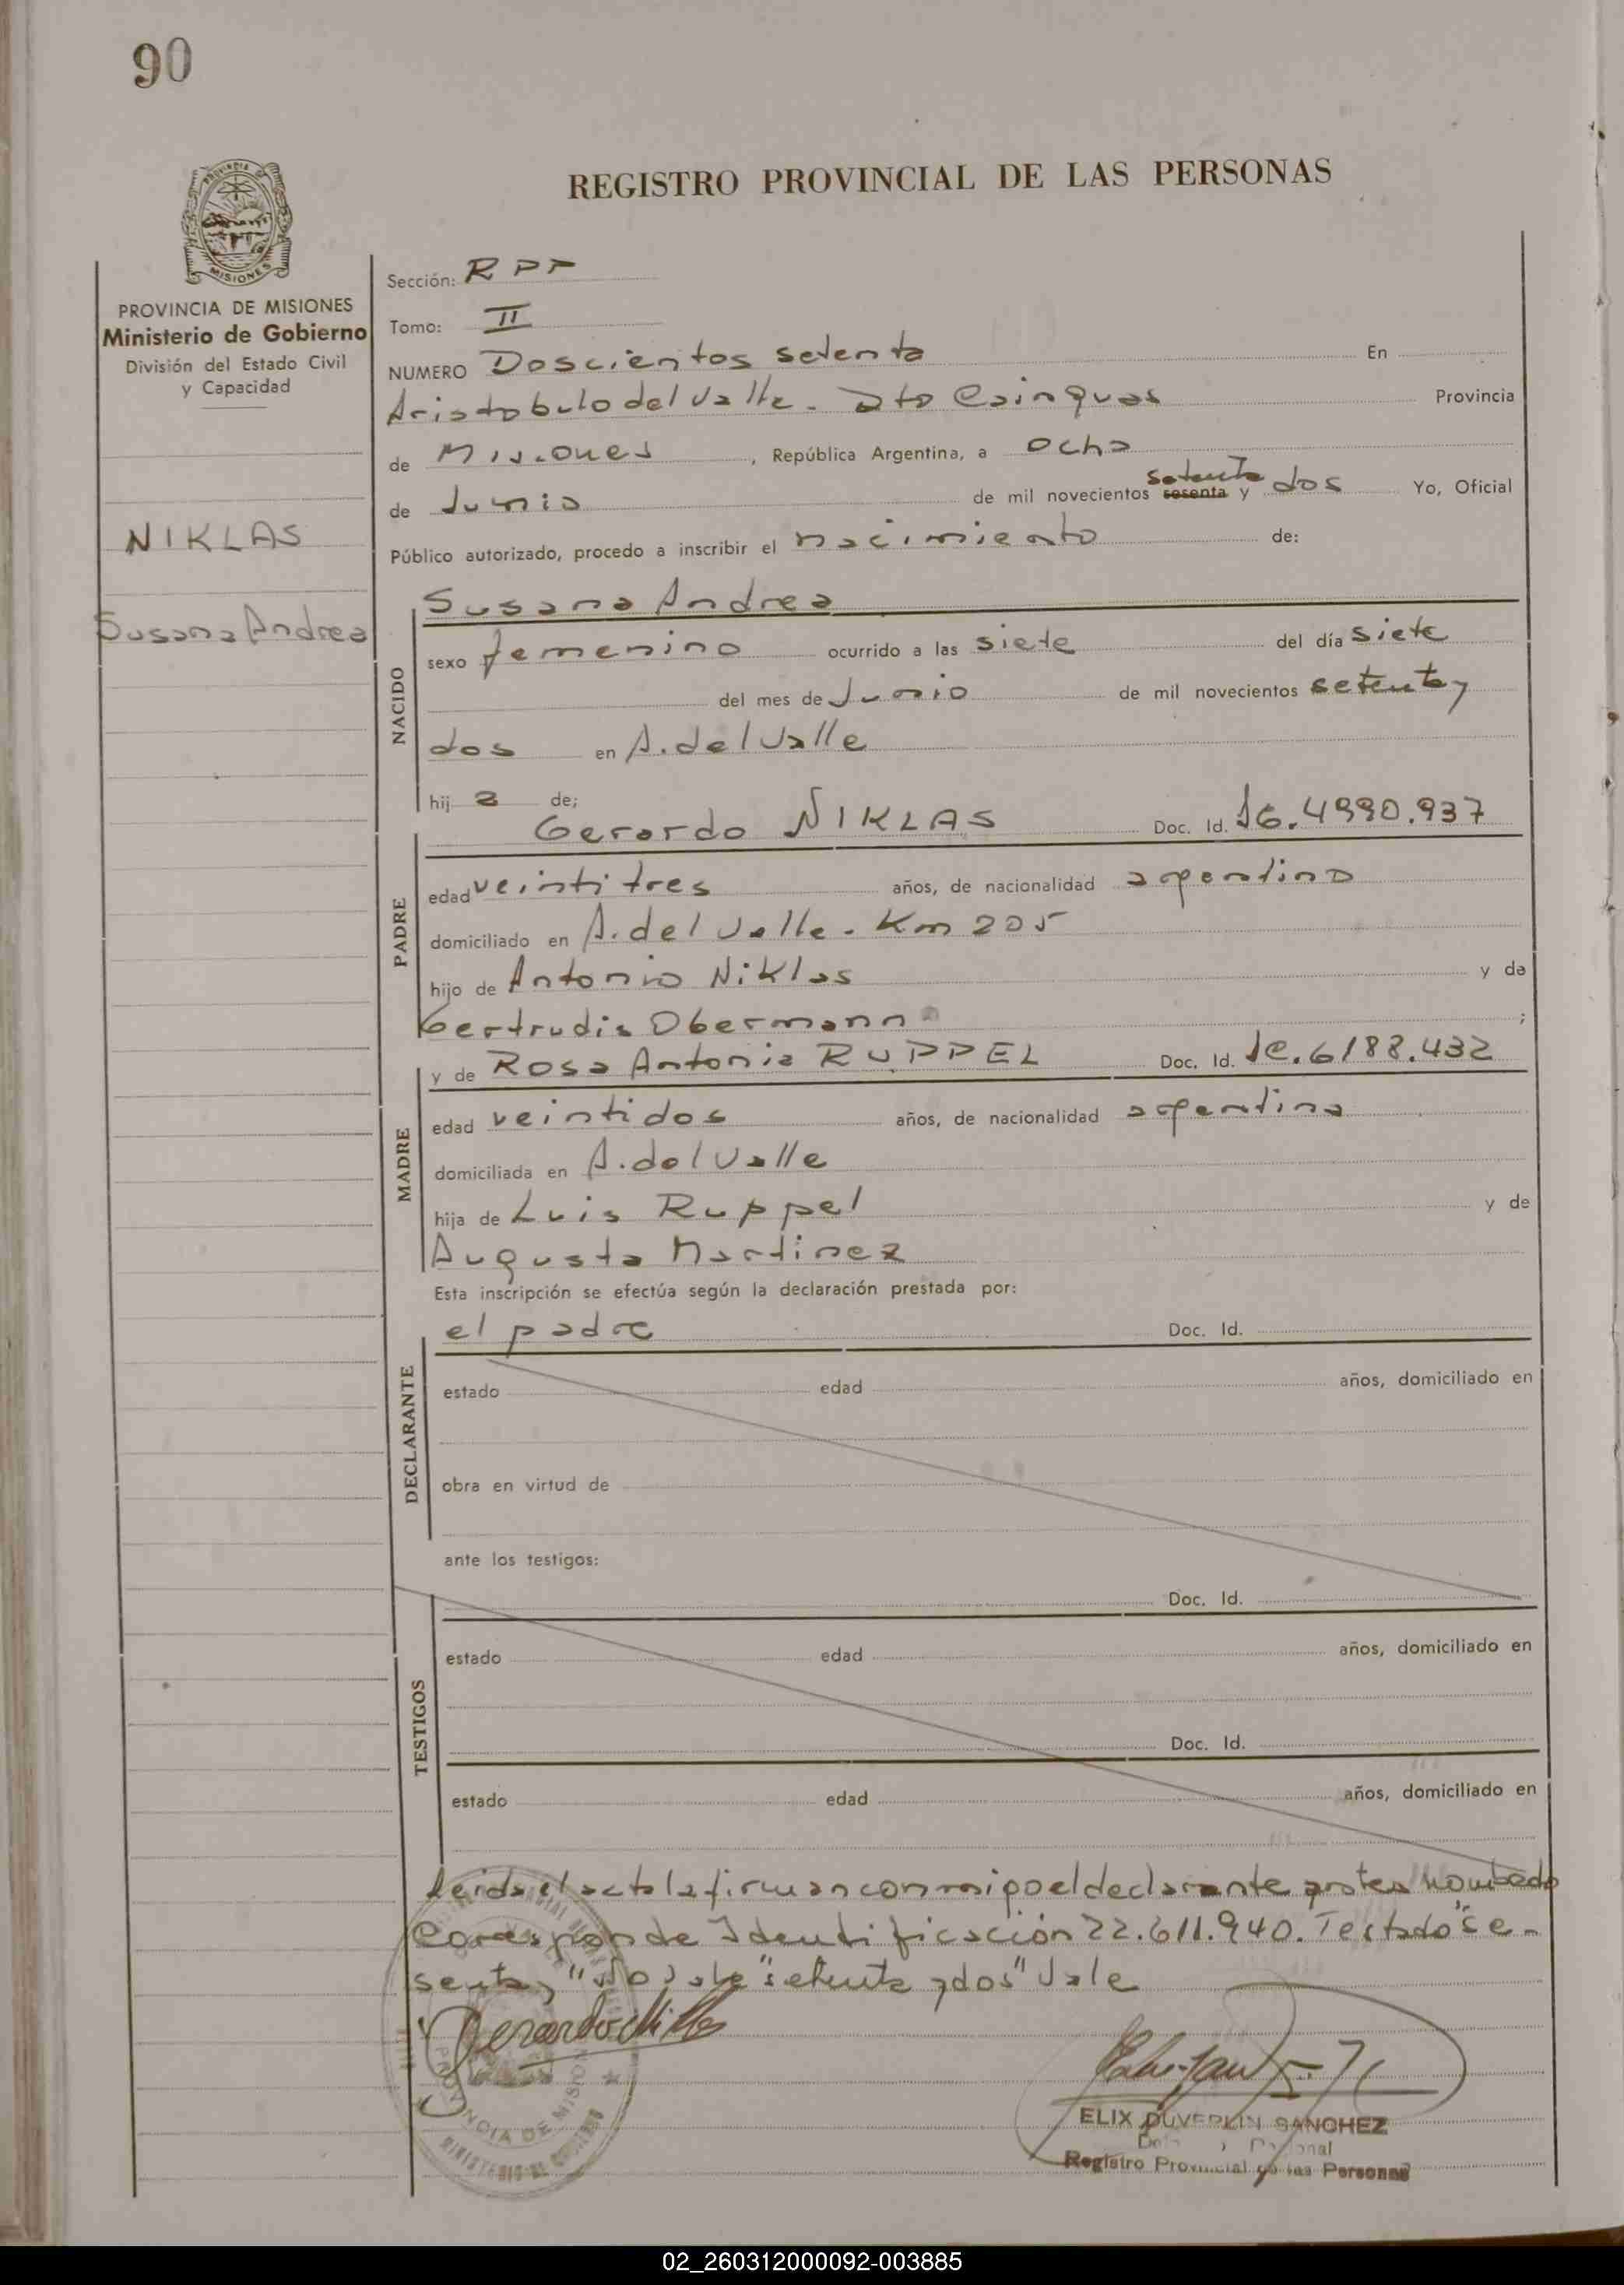 90
PROVINCIA DE MISIONES
Ministerio de Gobierno
División del Estado Civil
y Capacidad
NIKLAS
Susana Andrea
REGISTRO PROVINCIAL DE LAS PERSONAS
Sección: RPP
Tomo: II
NUMERO Doscientos setenta En
Aristobulo del Valle. Dto Cainguas Provincia
de Misiones, República Argentina, a ocho
setenta
de Junio de mil novecientos sesenta y dos Yo, Oficial
Público autorizado, procedo a inscribir el nacimiento de:
Susana Andrea
NACIDO
sexo femenino ocurrido a las siete del día siete
del mes de Junio de mil novecientos setenta y
dos en A. del Valle
hij a de;
Gerardo NIKLAS Doc. Id. 16.4990.937
PADRE
edad veintitres años, de nacionalidad argentino
domiciliado en A. del Valle. Km 205
hijo de Antonio Niklas y de
Gertrudis Obermann ;
y de Rosa Antonia RUPPEL Doc. Id. 6188.432
MADRE
edad veintidos años, de nacionalidad argentina
domiciliada en A. del Valle
hija de Luis Ruppel y de
Augusta Martinez
Esta inscripción se efectúa según la declaración prestada por:
el padre Doc. Id.
DECLARANTE
estado edad años, domiciliado en
obra en virtud de
ante los testigos:
Doc. Id.
TESTIGOS
estado edad años, domiciliado en
Doc. Id.
estado edad años, domiciliado en
Leida el acta la firman conmigo el declarante antes nombrado
Corresponde Identificación 22.611.940. Testado "se-
senta y" No vale "setenta y dos" Vale
Gerardo Niklas
ELIX DUVERLIN SANCHEZ
Registro Provincial de las Personas
02_260312000092-003885